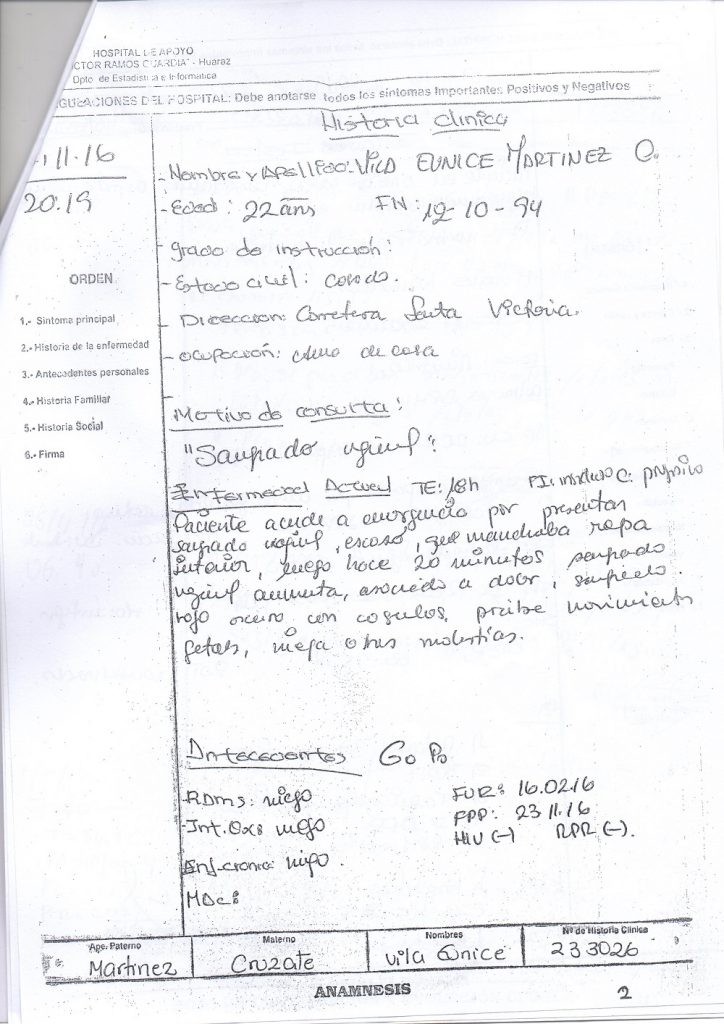 HOSPITAL DE APOYO
CTOR RAMOS GUARDIA" - Huaraz
Dpto. de Estadistica e Informatica
GUEACIONES DEL HOSPITAL: Debe anotarse todos los sintomas Importantes Positivos y Negativos
Historia clinica
11.16
20:19
- Nombre y Apellido: Vila EUNICE MARTINEZ C.
- Edad: 22 años FN: 12-10-94
- grado de instrucción:
- Estado civil: casada.
- Dirección: Carretera Santa Victoria.
- Ocupación: Ama de casa
ORDEN
1.- Sintoma principal
2.- Historia de la enfermedad
3.- Antecedentes personales
4.- Historia Familiar
5.- Historia Social
6.- Firma
Motivo de consulta:
"Sangrado vaginal".
Enfermedad Actual TE: 18h FI: insidioso C: progresivo
Paciente acude a emergencia por presentar
sangrado vaginal, escaso, que manchaba ropa
interior, luego hace 20 minutos sangrado
vaginal aumenta, asociado a dolor, sangrado
rojo oscuro con coagulos, percibe movimientos
fetales, niega otras molestias.
Antecedentes G0 P0
- RAMS: niega
- Int. Qxs niega
Enf. cronic: niega.
MAC:
FUR: 16.02.16
FPP: 23 11.16
HIV (-) RPR (-).
Ape. Paterno Materno Nombres Nº de Historia Clinica
Martinez Cruzate Vila Eunice 233026
ANAMNESIS
2